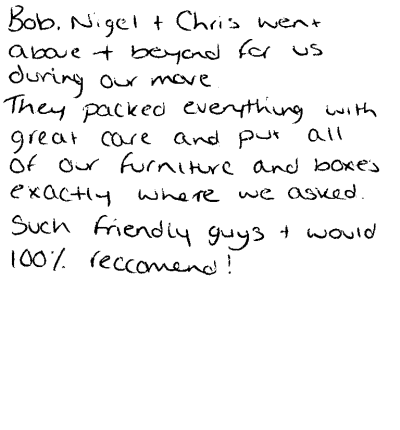 Bob, Nigel + Chris went
above + beyond for us
during our move.
They packed everything with
great care and put all
of our furniture and boxes
exactly where we asked.
Such friendly guys + would
100% reccomend!